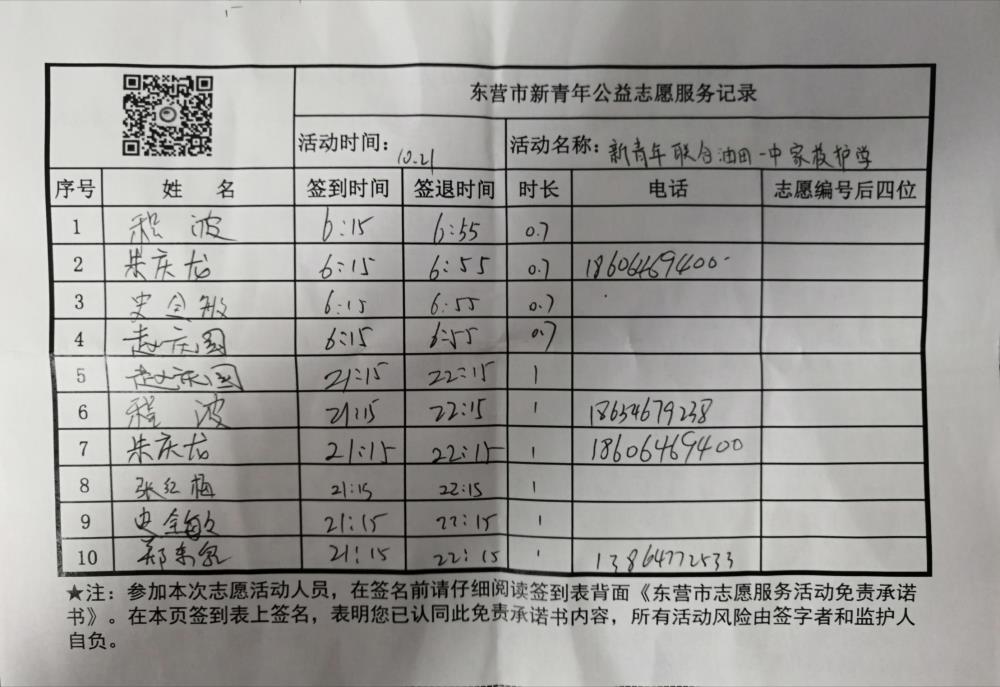 东营市新青年公益志愿服务记录
活动时间: 10.21 活动名称: 新青年联合油田一中家校护学
序号 姓 名 签到时间 签退时间 时长 电话 志愿编号后四位
1 程波 6:15 6:55 0.7
2 朱庆龙 6:15 6:55 0.7 18606469400
3 史全敏 6:15 6:55 0.7
4 赵庆国 6:15 6:55 0.7
5 赵庆国 21:15 22:15 1
6 程波 21:15 22:15 1 18654679238
7 朱庆龙 21:15 22:15 1 18606469400
8 张红梅 21:15 22:15 1
9 史全敏 21:15 22:15 1
10 郑 21:15 22:15 1 13864772533
★注: 参加本次志愿活动人员，在签名前请仔细阅读签到表背面《东营市志愿服务活动免责承诺
书》。在本页签到表上签名，表明您已认同此免责承诺书内容，所有活动风险由签字者和监护人
自负。